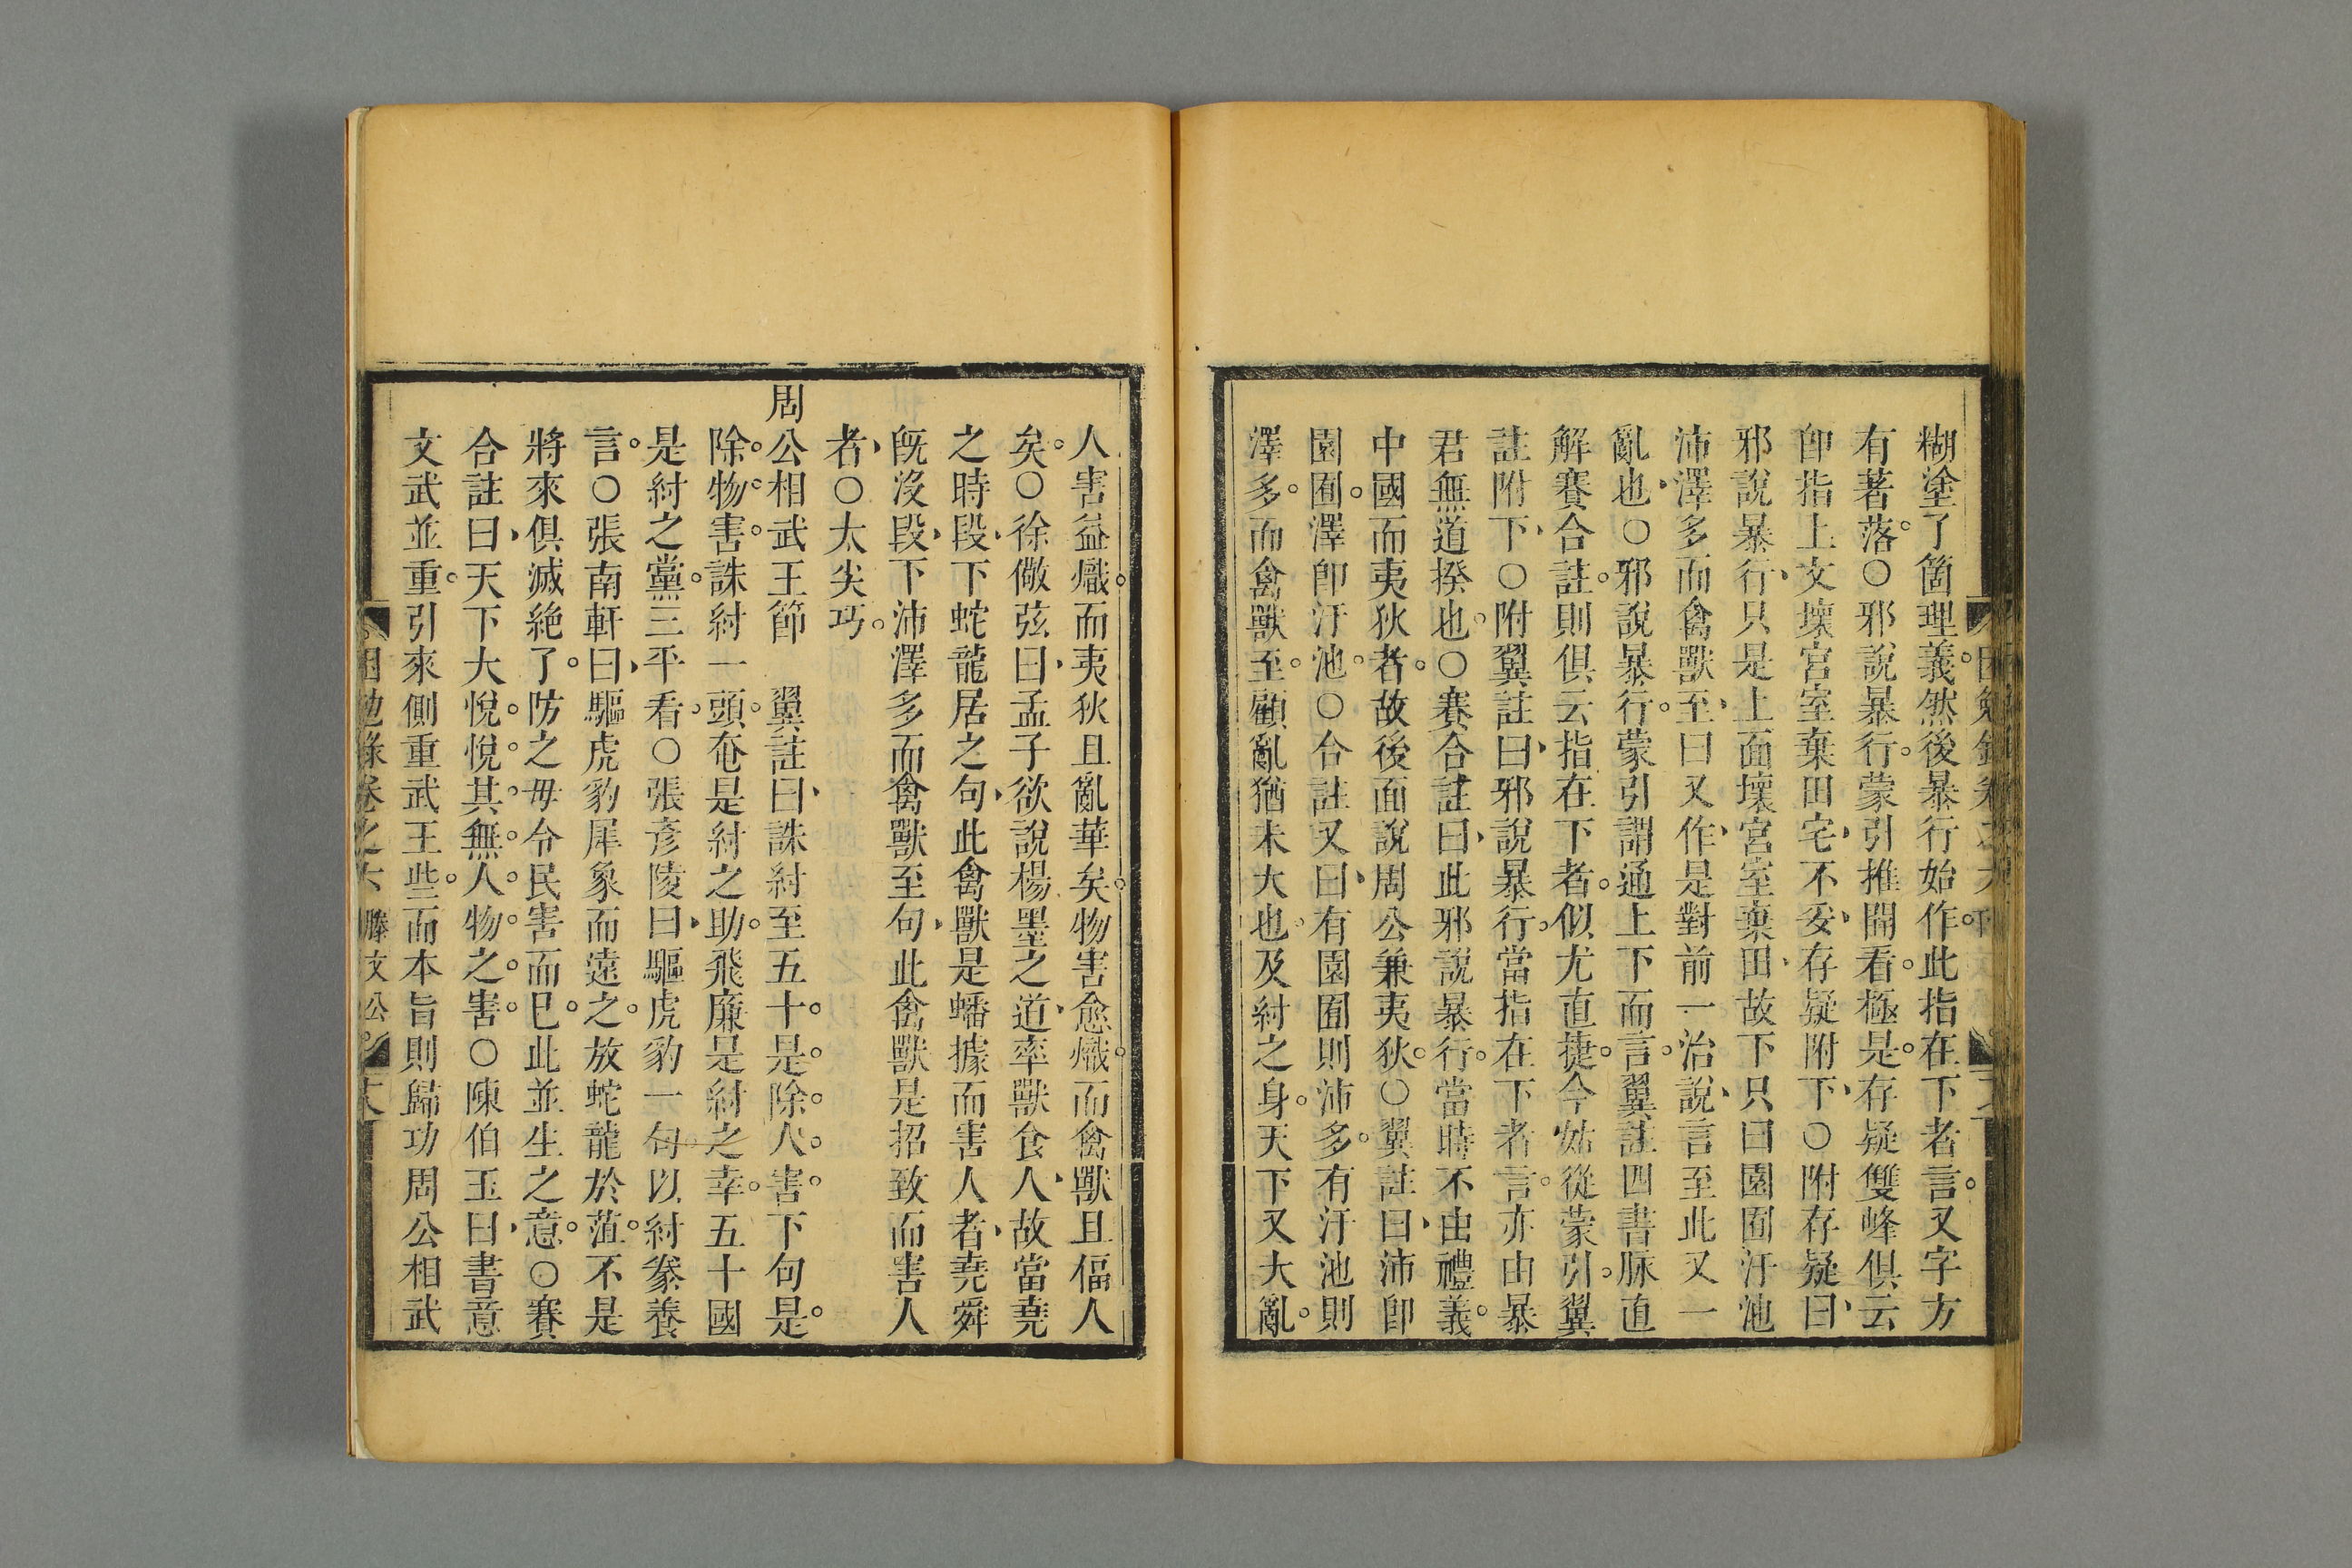 糊塗了箇理義。然後暴行始作。此指在下者言。又字方
有著落。○邪說暴行。蒙引推開看。極是。存疑雙峰俱云
卽指上文壞宮室棄田宅、不妥、存疑附下、○附存疑曰、
邪說暴行、只是上面壞宮室棄田、故下只曰園囿汙池
沛澤多而禽獸至、曰又作、是對前一治說、言至此又一
亂也、○邪說暴行。蒙引謂通上下而言。翼註四書脉直
解賽合註。則俱云指在下者。似尤直捷。今姑從蒙引。翼
註附下、○附翼註曰、邪說暴行。當指在下者言。亦由暴
君無道揆也。○賽合註曰、此邪說暴行。當時不由禮義。
中國而夷狄者。故後面說周公兼夷狄。○翼註曰、沛卽
園囿。澤卽汙池。○合註又曰、有園囿則沛多。有汙池則
澤多。而禽獸至。顧亂猶未大也。及紂之身。天下又大亂。
人害益熾。而夷狄且亂華矣。物害愈熾。而禽獸且偪人
矣。○徐儆弦曰、孟子欲說楊墨之道、率獸食人、故當堯
之時段、下蛇龍居之句、此禽獸是蟠據而害人者、堯舜
旣沒段、下沛澤多而禽獸至句、此禽獸是招致而害人
者、○太尖巧。
周公相武王節　翼註曰、誅紂至五十。是。除。人。害。下句是。
除。物。害。誅紂一頭。奄是紂之助。飛廉是紂之幸。五十國
是紂之黨。三平看。○張彥陵曰、驅虎豹一句。以紂豢養
言。○張南軒曰、驅虎豹犀象而遠之。放蛇龍於菹。不是
將來俱滅絶了。防之毋令民害而已。此並生之意。○賽
合註曰、天下大悅。悅。其。無。人。物。之。害。○陳伯玉曰、書意
文武並重。引來側重武王些。而本旨則歸功周公相武
困勉錄卷之六　滕文公